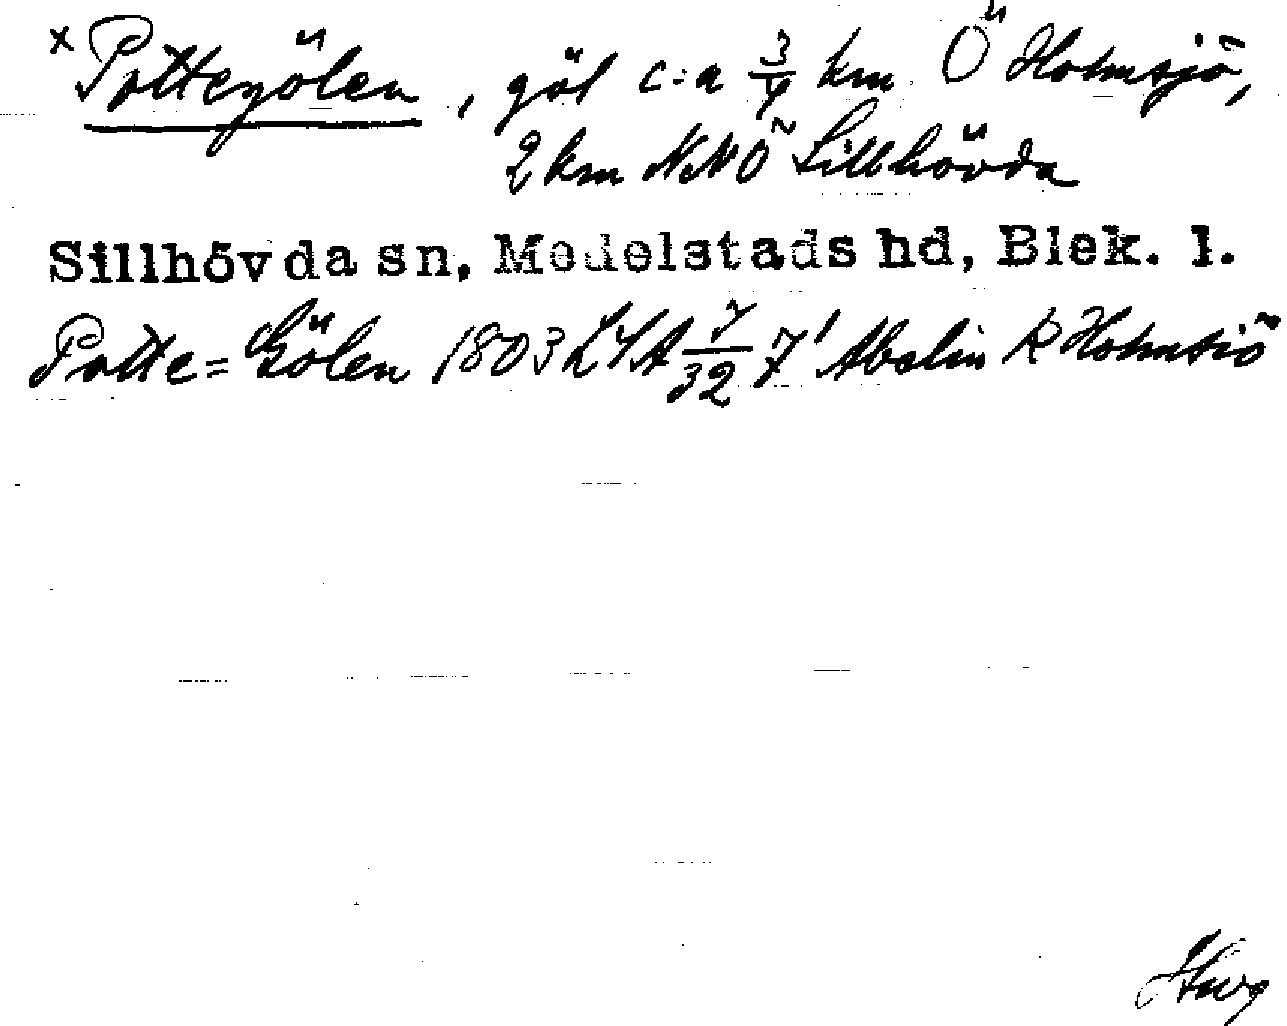 x Pottegölen, göl c:a 3/4 km Ö Holmsjö,
2 km NNÖ Sillhövda
Sillhövda sn, Medelstads hd, Blek. l.
Potte=Gölen 1803 LSA 7/32 7' Abelin R Holmsiö